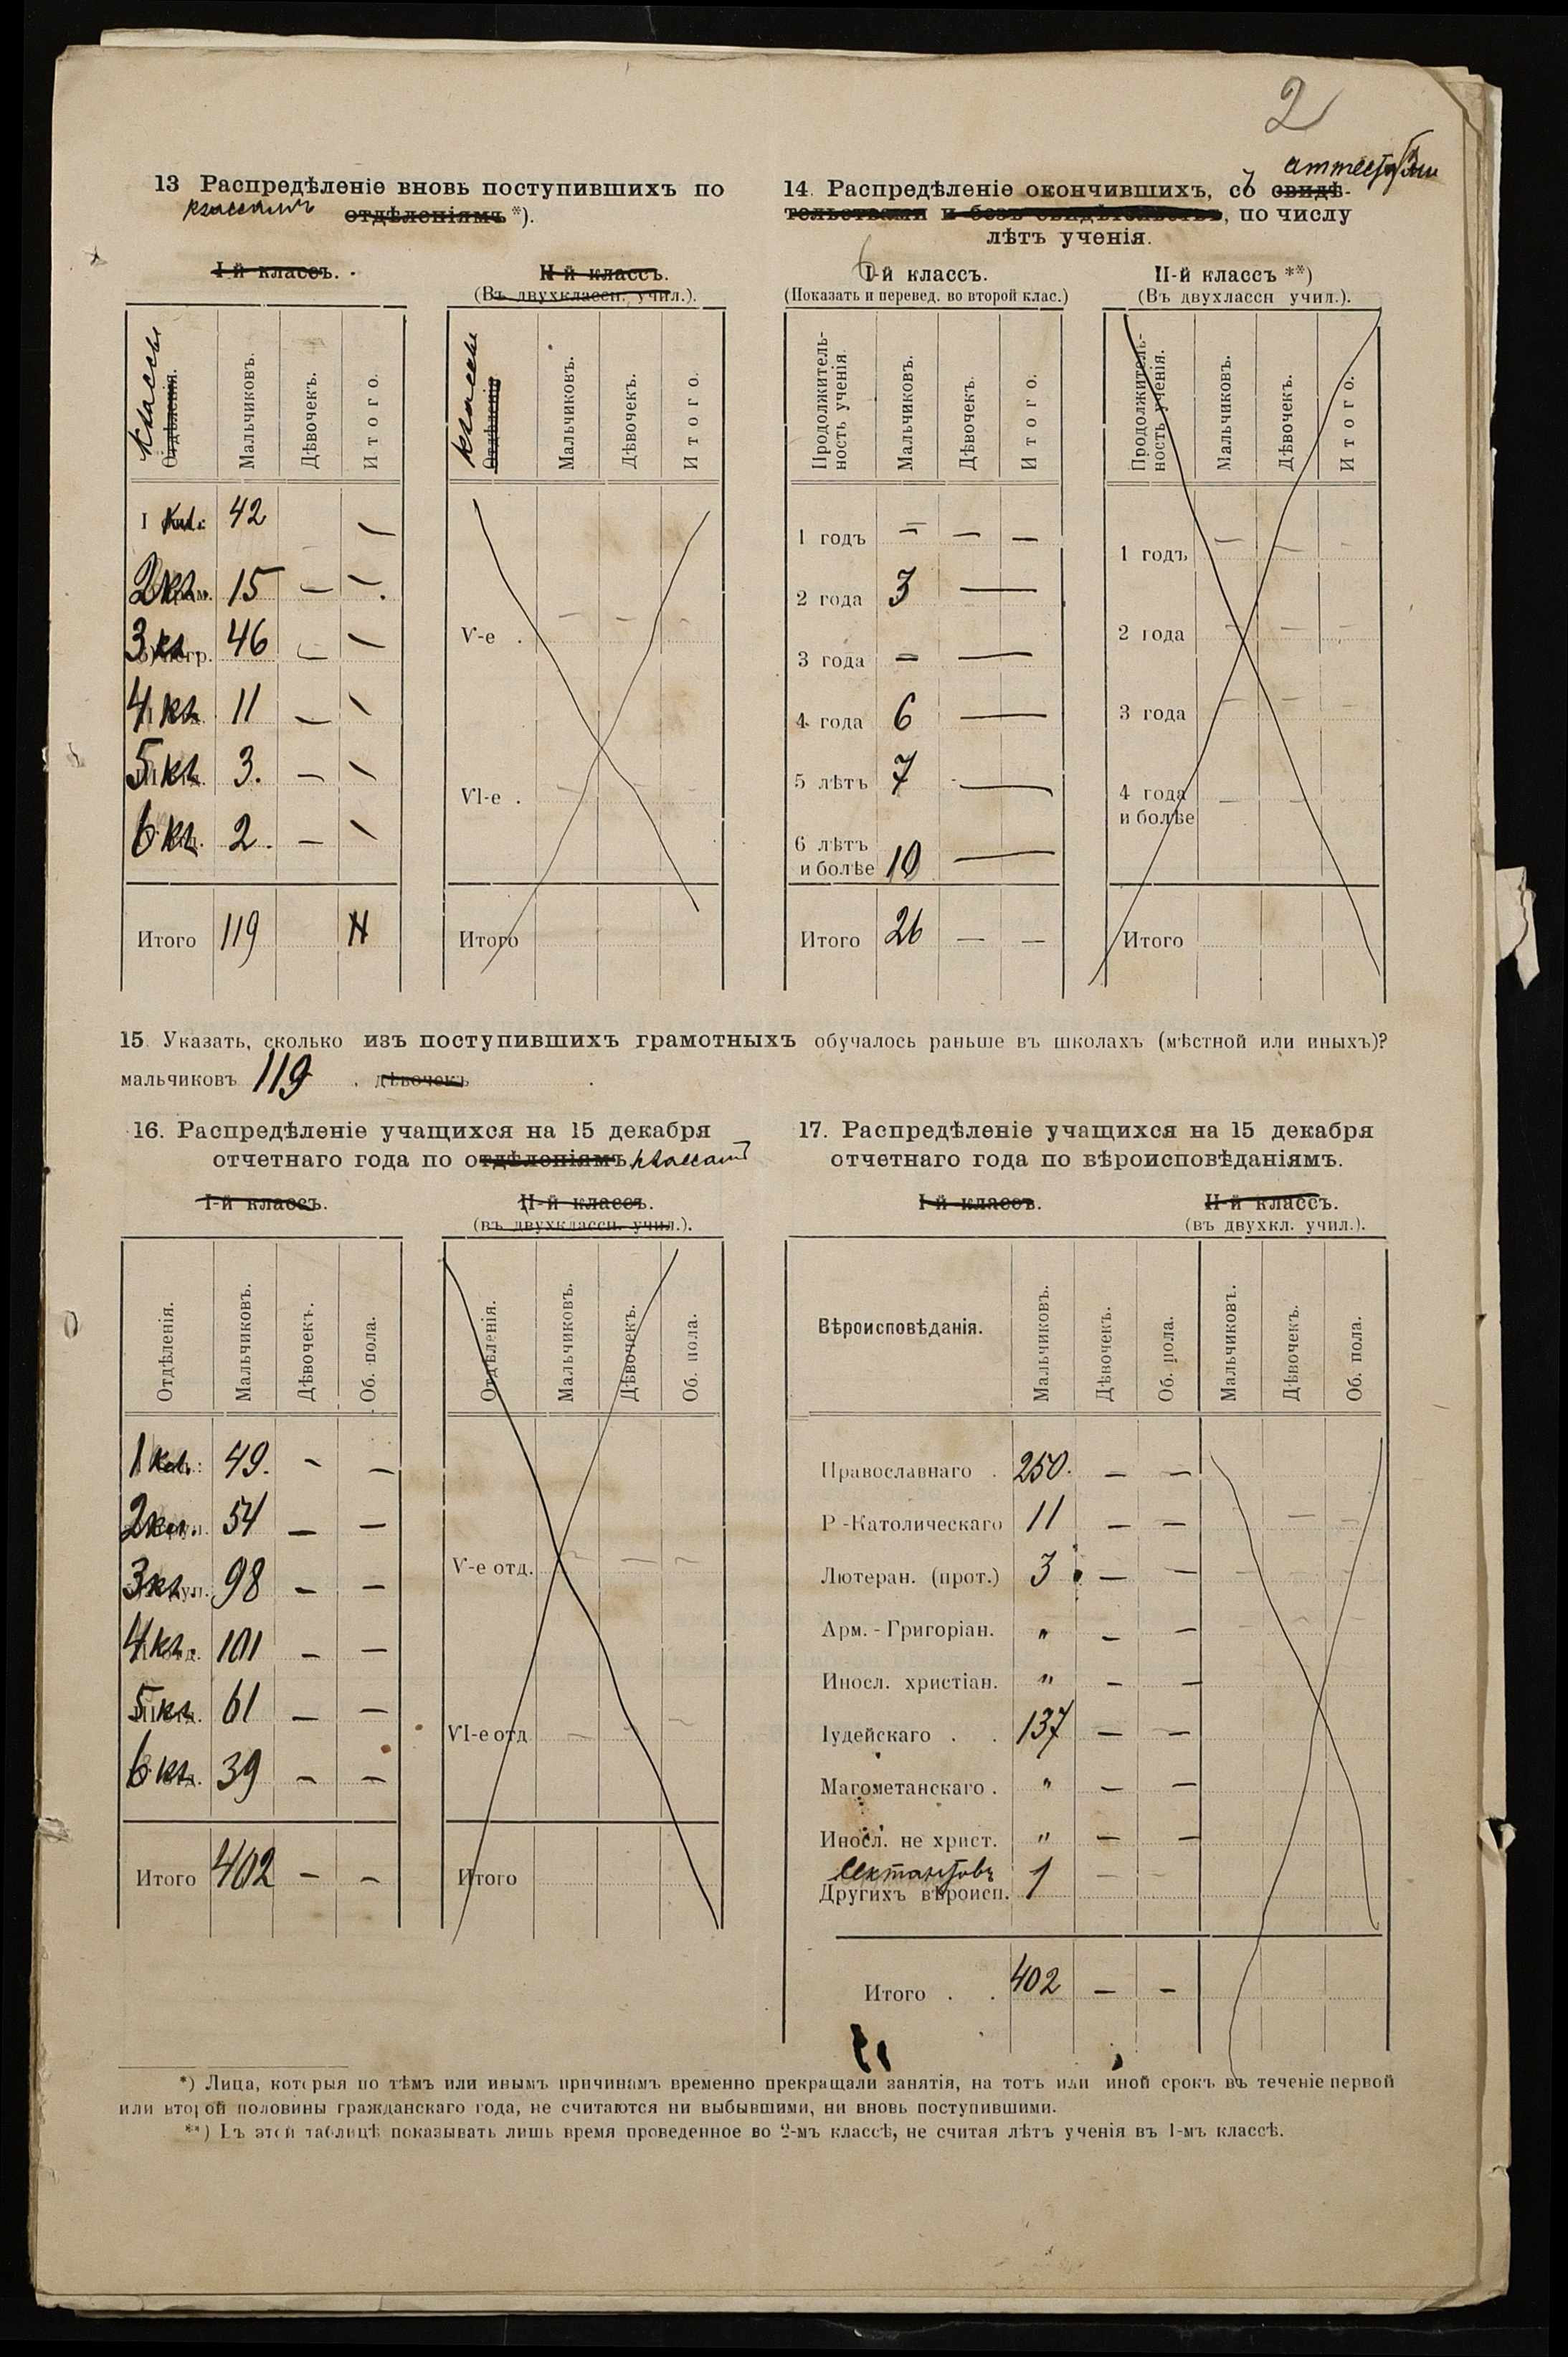 2
13 Распредѣленіе вновь поступившихъ по
классамъ отдѣленіямъ *).
І-й классъ.
ІІ-й классъ.
(Въ двухклассн. учил.).
классы
Отдѣленія.
Мальчиковъ.
Дѣвочекъ.
Итого.
І кл. 42 —
2 кл. 15 — —
3 кл. 46 — —
4 кл. 11 — —
5 кл. 3. — —
6 кл. 2. — —
Итого 119
классы
Отдѣленія
Мальчиковъ.
Дѣвочекъ.
Итого.
V-е .
VI-е .
Итого
аттестатами
14. Распредѣленіе окончившихъ, съ свидѣ-
тельствами и безъ свидѣтельствъ, по числу
лѣтъ ученія.
І-й классъ.
(Показать и перевед. во второй клас.)
ІІ-й классъ **)
(Въ двухлассн учил.).
Продолжитель-
ность ученія.
Мальчиковъ.
Дѣвочекъ.
Итого.
1 годъ — — —
2 года 3 —
3 года — —
4 года 6 —
5 лѣтъ 7 —
6 лѣтъ
и болѣе 10 —
Итого 26 — —
Продолжитель-
ность ученія.
Мальчиковъ.
Дѣвочекъ.
Итого.
1 годъ
2 года
3 года
4 года
и болѣе
Итого
15 Указать, сколько изъ поступившихъ грамотныхъ обучалось раньше въ школахъ (мѣстной или иныхъ)?
мальчиковъ 119 . дѣвочекъ .
16. Распредѣленіе учащихся на 15 декабря
отчетнаго года по отдѣленіямъ классамъ
І-й классъ.
ІІ-й классъ.
(въ двухклассн. учил.).
Отдѣленія.
Мальчиковъ.
Дѣвочекъ.
Об. пола.
1 кл. 49. — —
2 кл. 54 — —
3 кл. 98 — —
4 кл. 101 — —
5 кл. 61 — —
6 кл. 39 — —
Итого 402 — —
Отдѣленія.
Мальчиковъ.
Дѣвочекъ.
Об. пола.
V-е отд.
VI-е отд
Итого
17. Распредѣленіе учащихся на 15 декабря
отчетнаго года по вѣроисповѣданіямъ.
І-й классъ.
ІІ-й классъ.
(въ двухкл. учил.).
Вѣроисповѣданія.
Мальчиковъ.
Дѣвочекъ.
Об. пола.
Мальчиковъ.
Дѣвочекъ.
Об. пола.
Православнаго . 250. — —
Р-Католическаго 11 — —
Лютеран. (прот.) 3 — —
Арм.-Григоріан. " — —
Иносл. христіан. " — —
Іудейскаго . . 137 — —
Магометанскаго . " — —
Иносл. не христ. " — —
Сектантовъ
Другихъ вѣроисп. 1
Итого . . 402 — —
*) Лица, которыя по тѣмъ или инымъ причинамъ временно прекращали занятія, на тотъ или иной срокъ въ теченіе первой
или второй половины гражданскаго года, не считаются ни выбывшими, ни вновь поступившими.
**) Въ этой таблицѣ показывать лишь время проведенное во 2-мъ классѣ, не считая лѣтъ ученія въ 1-мъ классѣ.